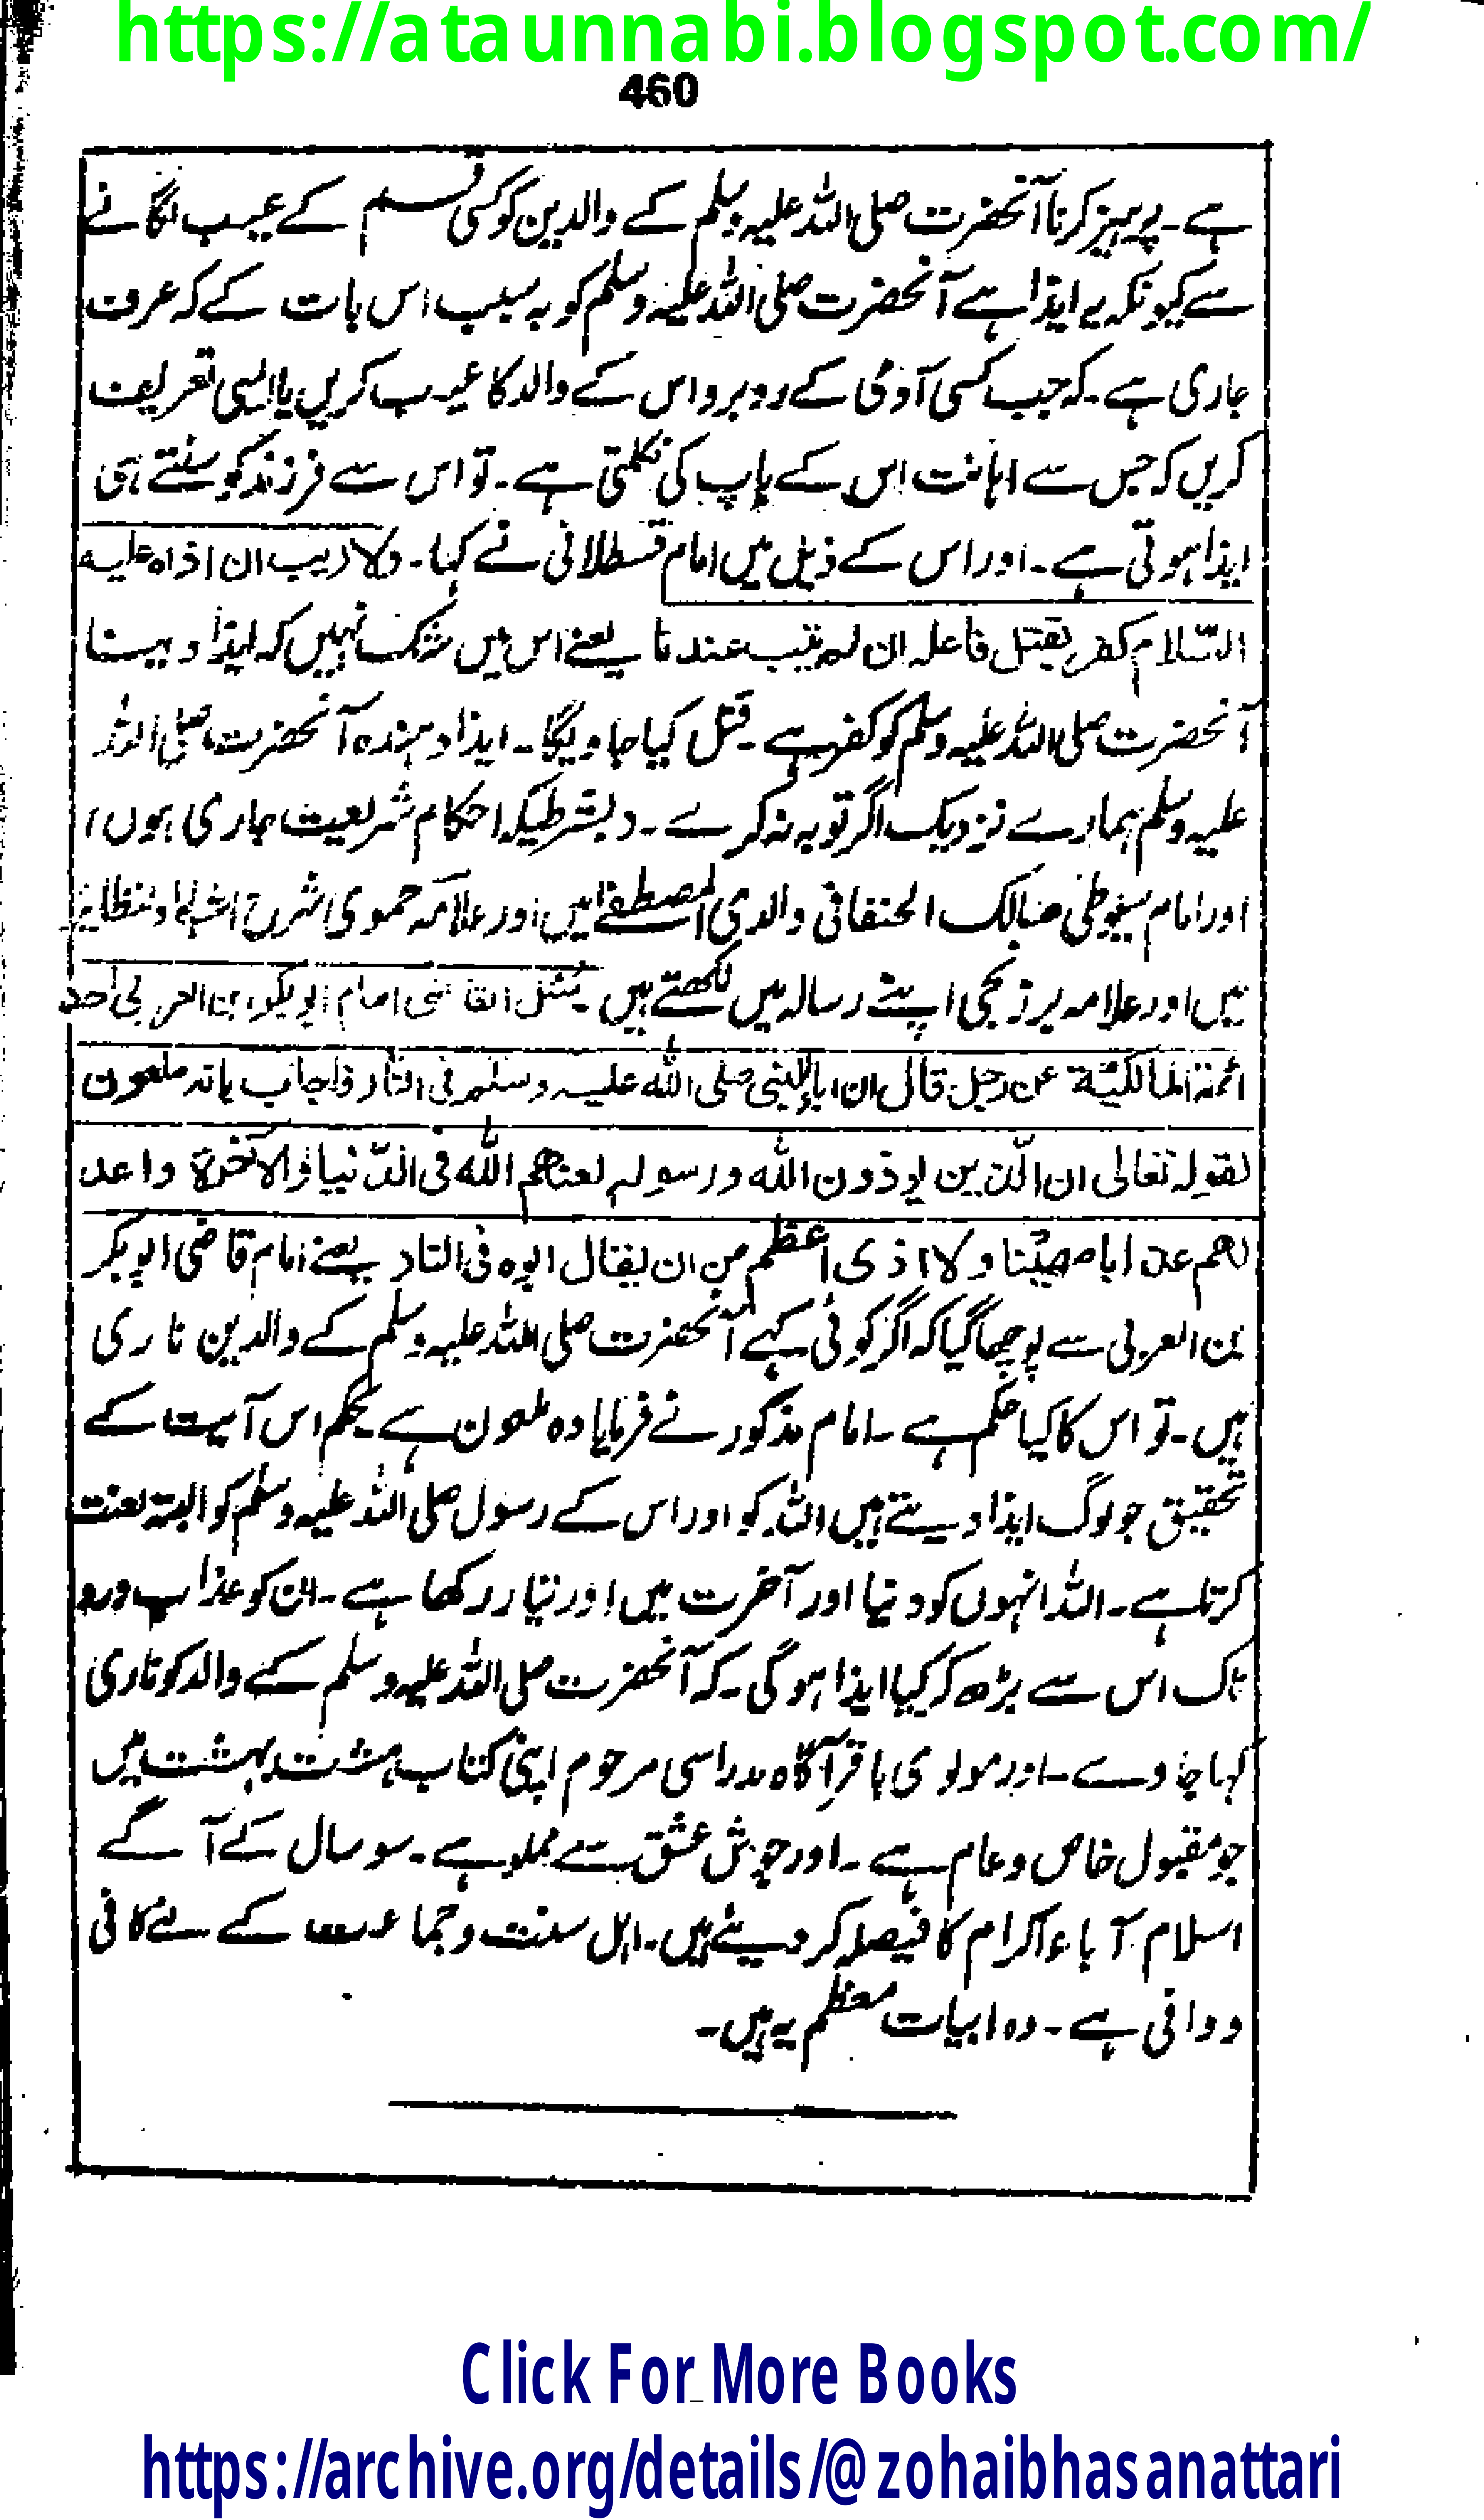 https://ataunnabi.blogspot.com/
460
ہے۔ پرہیز کرنا آنحضرت صلی اللہ علیہ وسلم کے والدین کو کسی قسم کے عیب لگانے
سے کیونکہ یے ایذا ہے آنحضرت صلی اللہ علیہ وسلم کو بہ سبب اس بات کے کہ عرف
جاری ہے۔ کہ جب کسی آدمی کے روبرو اس کے والد کا عیب کریں یا ایسی تعریف
کریں کہ جس سے اہانت اس کے باپ کی نکلتی ہے۔ تو اس سے فرزند کو سنتے ہی
ایذا ہوتی ہے۔ اور اس کے ذیل میں امام قسطلانی نے کہا۔ ولا ریب ان اذاہ علیہ
السّلام کفر یقتل فاعلہ ان لم یتب عندنا یعنے اس میں شک نہیں کہ ایذا دینا
آنحضرت صلی اللہ علیہ وسلم کو کفر ہے۔ قتل کیا جاویگا۔ ایذا دہندہ آنحضرت صلی اللہ
علیہ وسلم ہمارے نزدیک اگر توبہ نہ کرے۔ دبشرطیکہ احکام شریعت جاری ہوں،
اور امام سیوطی مسالک الحنفافی والدی المصطفےٰ میں اور علامہ حموی شرح اشباہ ونظایر
میں اور علامہ برزنجی اپنے رسالہ میں لکھتے ہیں۔ سُئل القاضی امام ابو بکر بن العربی احد
ائمۃ المالکیّۃ عن رجل قال ان اباء النبی صلی اللہ علیہ وسلم فی النار فاجاب بانہ ملعون
لقولہ تعالی ان الّذین یوذون اللہ ورسولہ لعنھم اللہ فی الدّنیا والآخرۃ واعد
لھم عذابا مھیْنا ولا اذی اعظم من ان یقال ابوہ فی النار یعنے امام قاضی ابو بکر
بن العربی سے پوچھا گیا کہ اگر کوئی کہے آنحضرت صلی اللہ علیہ وسلم کے والدین ناری
ہیں۔ تو اس کا کیا حکم ہے۔ امام مذکور نے فرمایا وہ ملعون ہے بحکم اس آیت کے
تحقیق جو لوگ ایذا دیتے ہیں اللہ کو اور اس کے رسول صلی اللہ علیہ وسلم کو البتہ لعنت
کرتا ہے۔ اللہ انہوں کو دنیا اور آخرت میں اور تیار رکھا ہے۔ ان کو عذاب درد
ناک اس سے بڑھ کر کیا ایذا ہوگی۔ کہ آنحضرت صلی اللہ علیہ وسلم کے والد کو ناری
کہا جاوے۔ اور مولوی باقر آگاہ مدراسی مرحوم اپنی کتاب ہشت بہشت میں
جو مقبول خاص و عام ہے۔ اور جوش عشق سے مملو ہے۔ سو سال کے آگے
اسلام آباء اکرام کا فیصلہ کر دیئے ہیں۔ اہل سنت وجماعت کے لئے کافی
و وافی ہے۔ وہ ابیات معظم یہ ہیں۔
Click For More Books
https://archive.org/details/@zohaibhasanattari